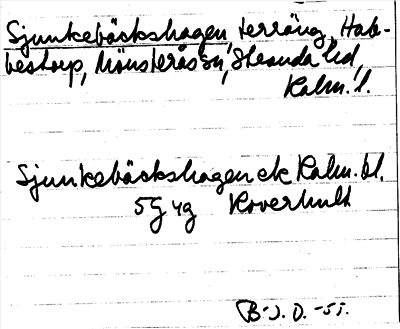 Sjunkebäckshagen, terräng, Hab-
bestorp, Mönsterås sn, Stranda hd,
Kalm. l.
Sjunkebäckshagen ek Kalm. bl.
5G 4g Roverhult
B-J. O. -51.